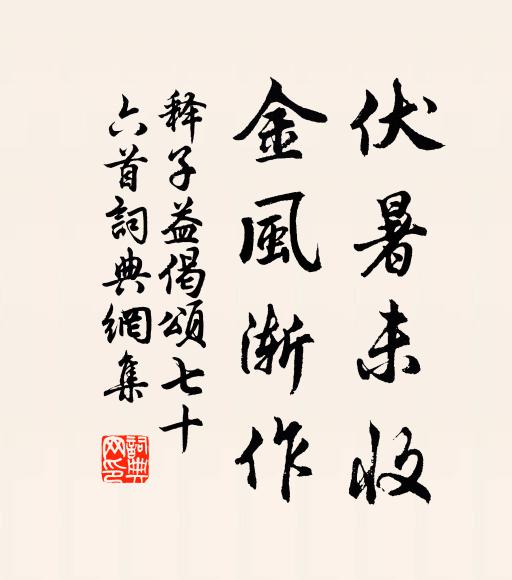 伏暑未收
金風漸作
释子益偈頌七十
六首詞典網集
詞典
网印